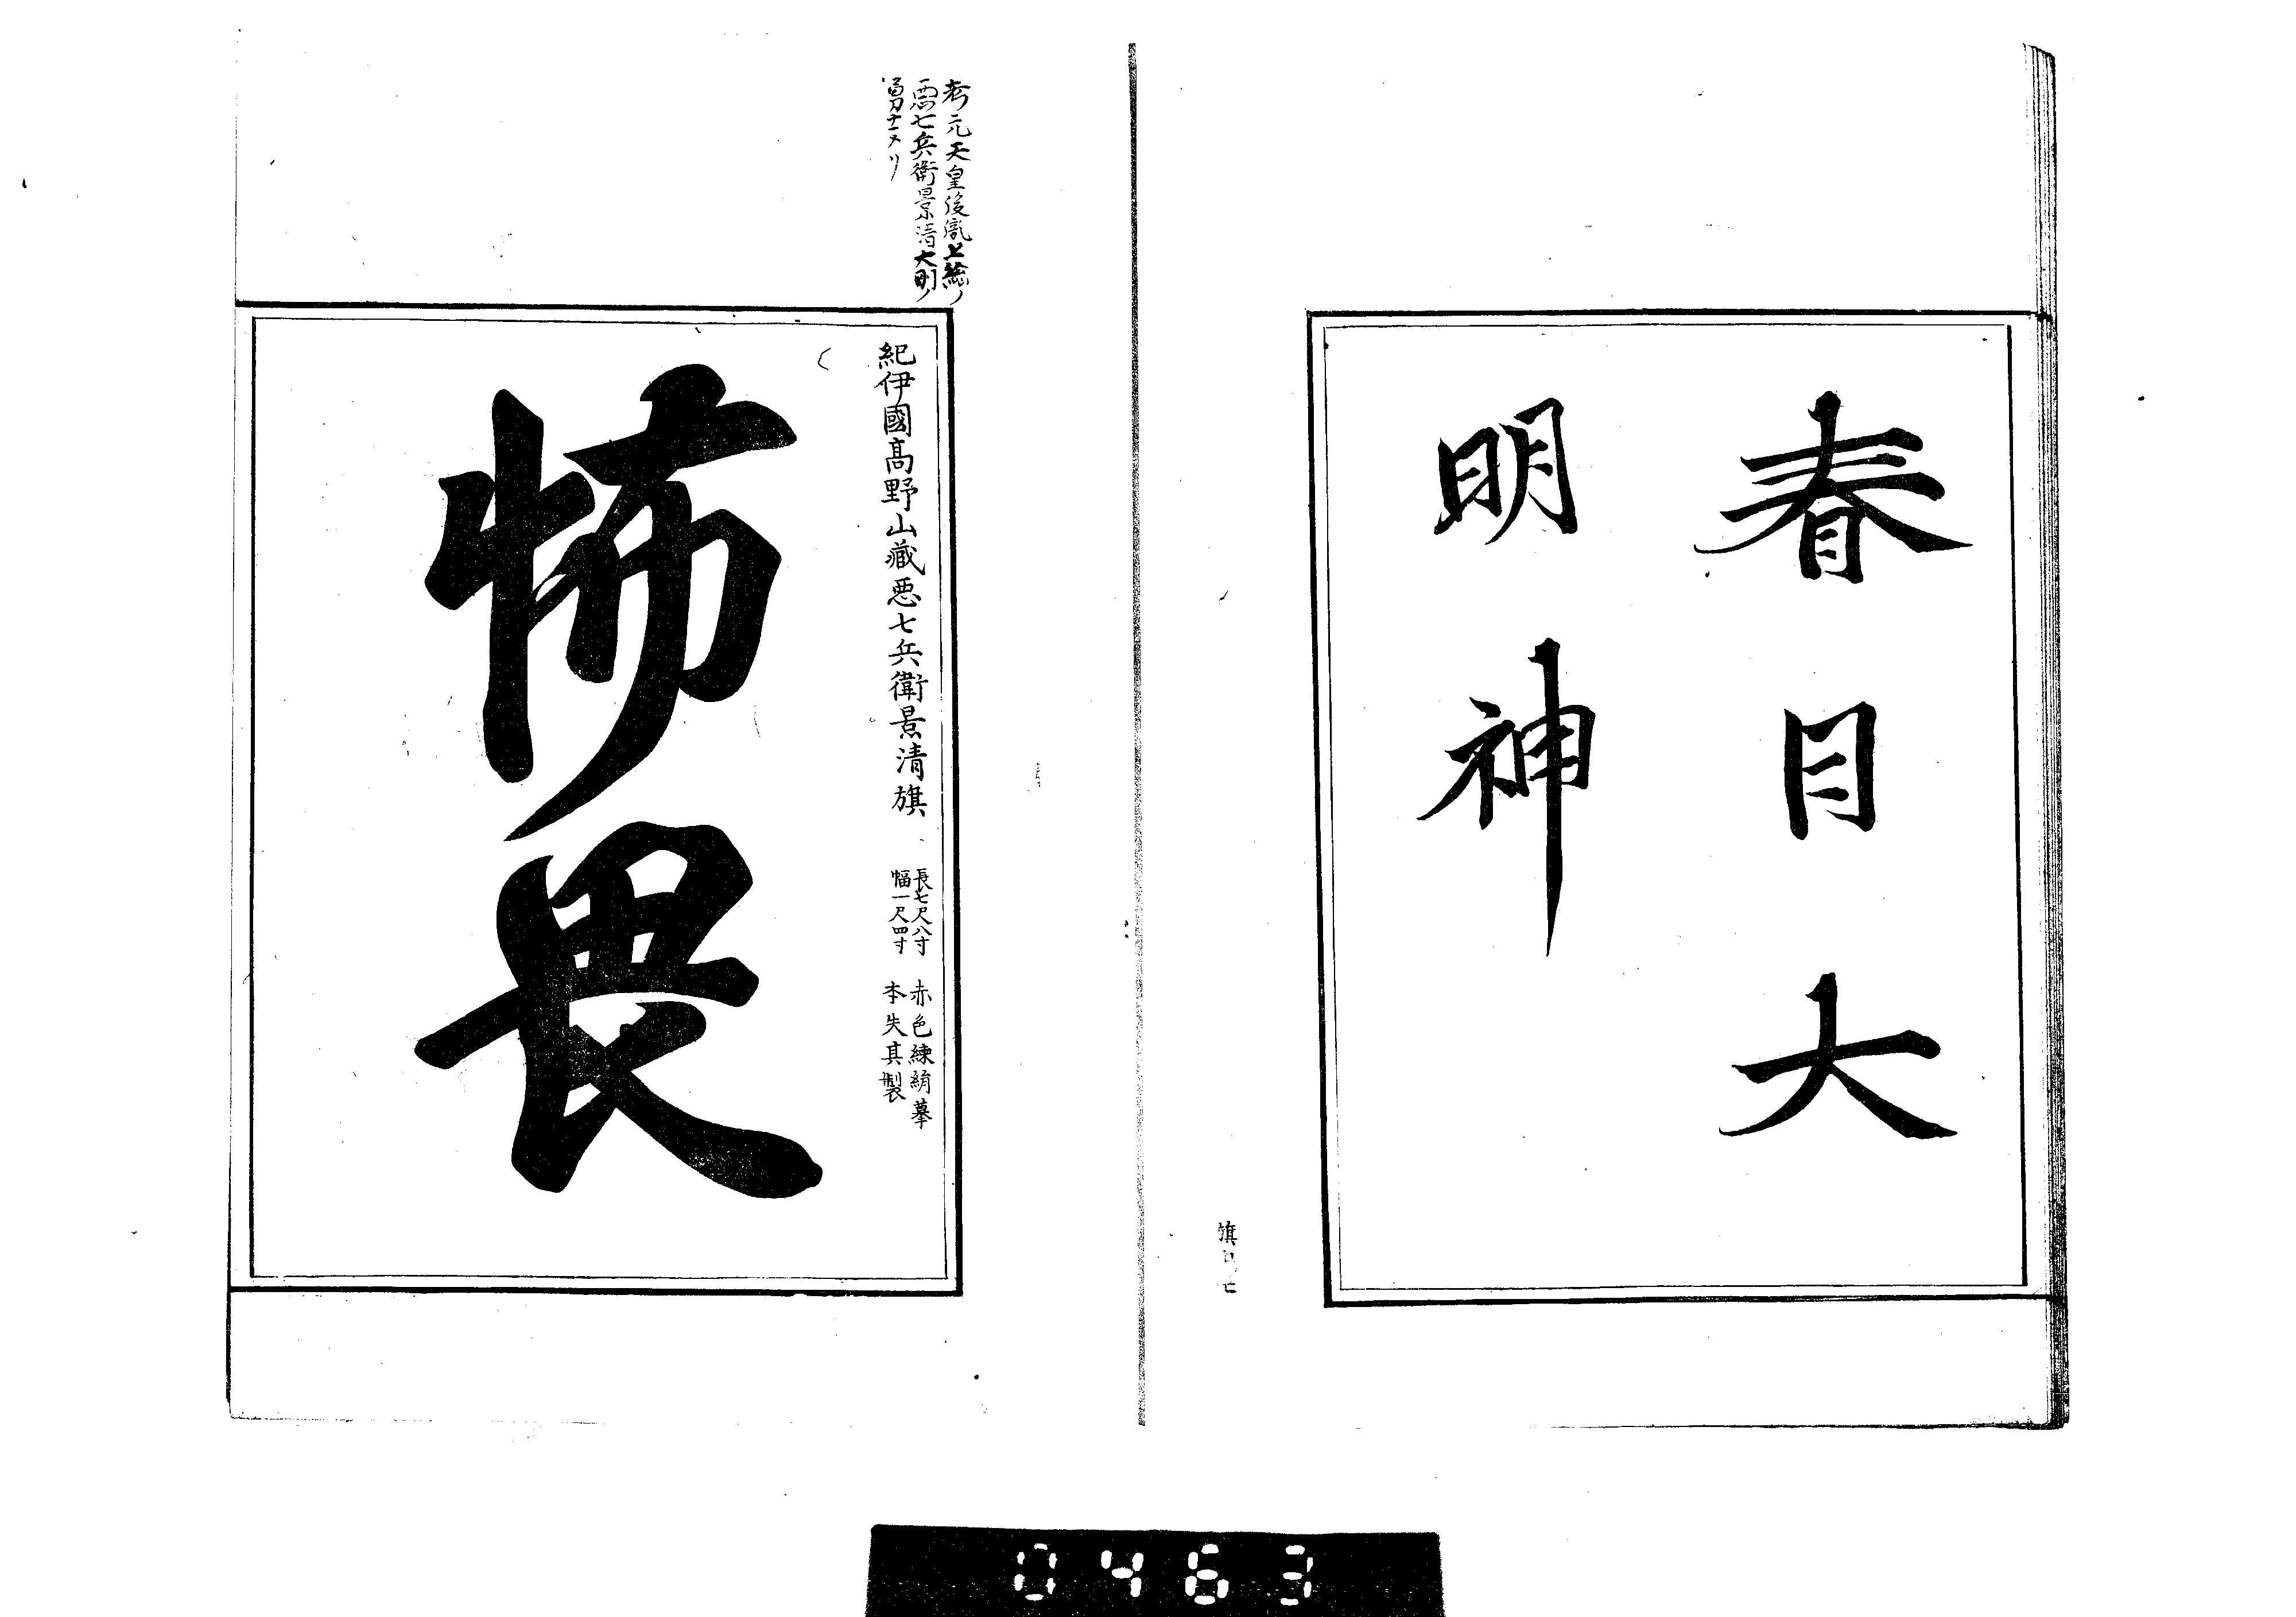 春日大
明神
旗
考元天皇後胤上総ノ
悪七兵衛景清大明ノ
勇士ナリ
紀伊國高野山藏悪七兵衛景清旗
長七尺八寸
幅一尺四寸
赤色練絹摹
本失其製
怖畏
0463